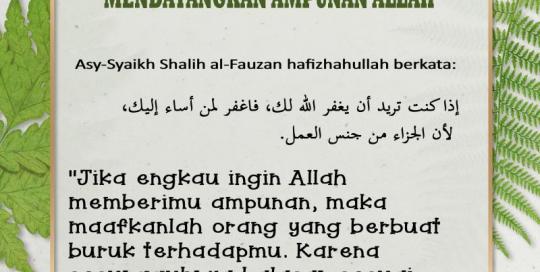 MENDATANGKAN AMPUNAN ALLAH
Asy-Syaikh Shalih al-Fauzan hafizhahullah berkata:
إذا كنت تريد أن يغفر الله لك، فاغفر لمن أساء إليك،
لأن الجزاء من جنس العمل.
"Jika engkau ingin Allah
memberimu ampunan, maka
maafkanlah orang yang berbuat
buruk terhadapmu. Karena